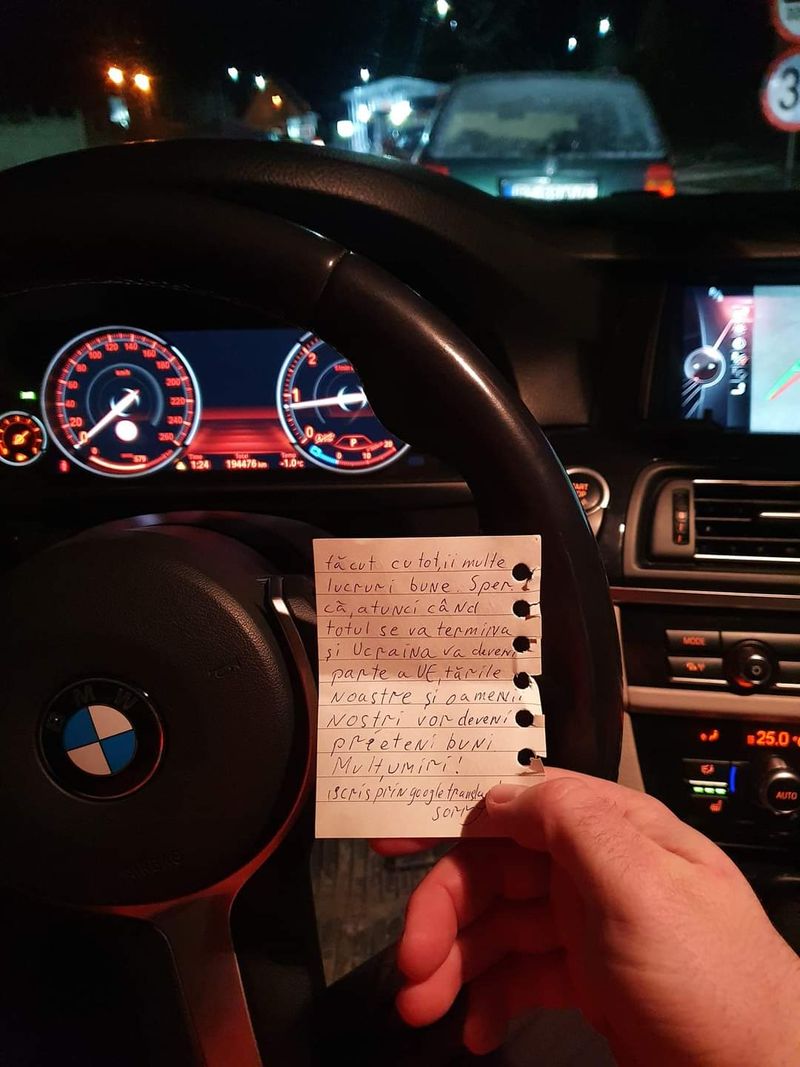 făcut cu toții multe
lucruri bune. Sper
că, atunci când
totul se va termina
și Ucraina va deveni
parte a UE, țările
noastre și oamenii
noștri vor deveni
prieteni buni
Mulțumiri!
scris prin google
BMW
AIRBAG
km/h
0 20 40 60 80 100 120 140 160 180 200 220 240 260
0 1 2
P
Time
1:24
Total
194476 km
Temp
-1.0°C
START
STOP
MODE
25.0
AUTO
3